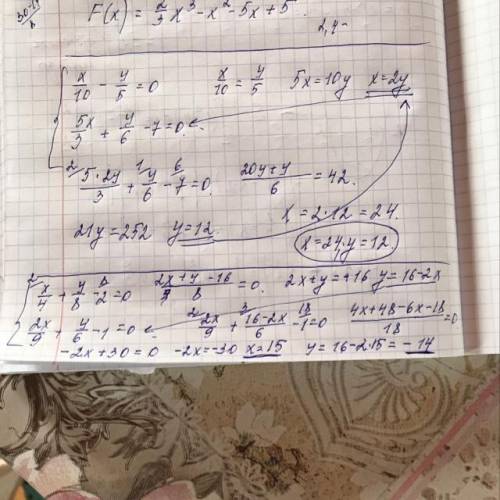 F(x) = 2/3 x³ - x² - 5x + 5
x/10 - y/5 = 0 x/10 = y/5 5x = 10y x = 2y
5x/3 + y/6 - 7 = 0
5·2y/3 + y/6 - 7 = 0 20y+y/6 = 42
x = 2·12 = 24
21y = 252 y = 12 x = 24, y = 12
x/4 + y/8 - 2 = 0 2x+y-16/8 = 0 2x+y = +16 y = 16-2x
2x/9 + y/6 - 1 = 0 2x/9 + 16-2x/6 - 1 = 0 4x+48-6x-18/18 = 0
-2x+30 = 0 -2x = -30 x = 15 y = 16-2·15 = -14